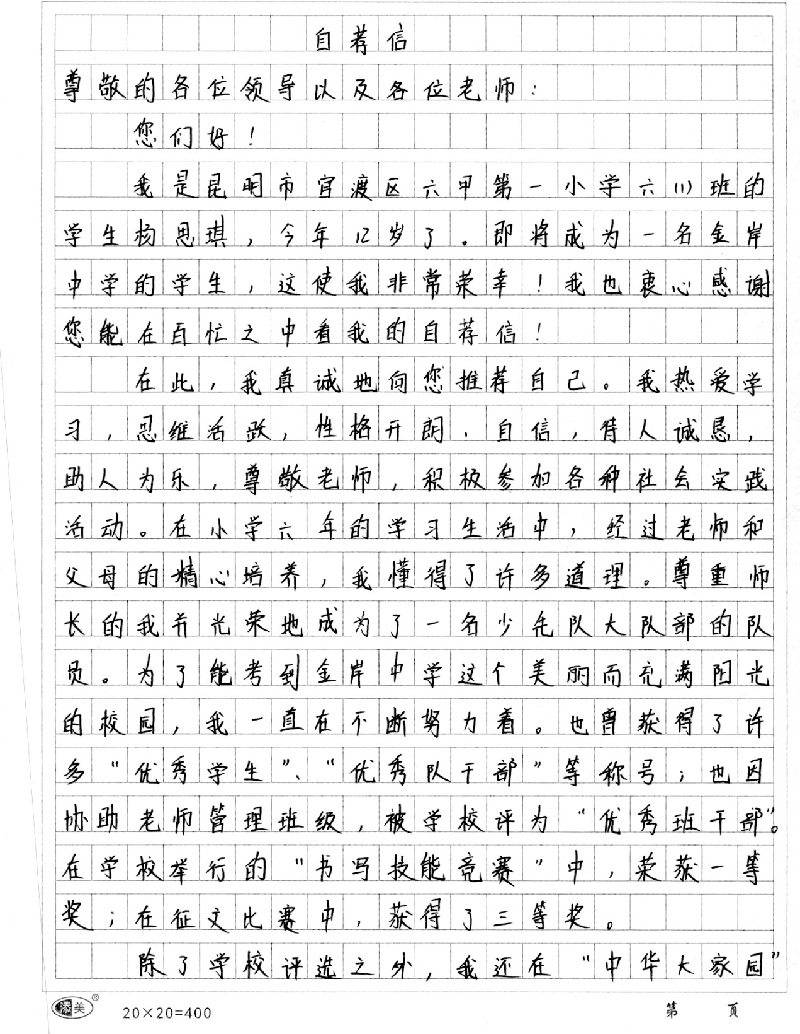 自荐信
尊敬的各位领导以及各位老师：
您们好！
我是昆明市官渡区六甲第一小学六(1)班的
学生杨思琪，今年12岁了。即将成为一名金岸
中学的学生，这使我非常荣幸！我也衷心感谢
您能在百忙之中看我的自荐信！
在此，我真诚地向您推荐自己。我热爱学
习，思维活跃，性格开朗、自信，待人诚恳，
助人为乐，尊敬老师，积极参加各种社会实践
活动。在小学六年的学习生活中，经过老师和
父母的精心培养，我懂得了许多道理。尊重师
长的我并光荣地成为了一名少先队大队部的队
员。为了能考到金岸中学这个美丽而充满阳光
的校园，我一直在不断努力着。也曾获得了许
多“优秀学生”、“优秀队干部”等称号；也因
协助老师管理班级，被学校评为“优秀班干部”。
在学校举行的“书写技能竞赛”中，荣获一等
奖；在征文比赛中，获得了三等奖。
除了学校评选之外，我还在“中华大家园”
美® 20×20=400 第 页